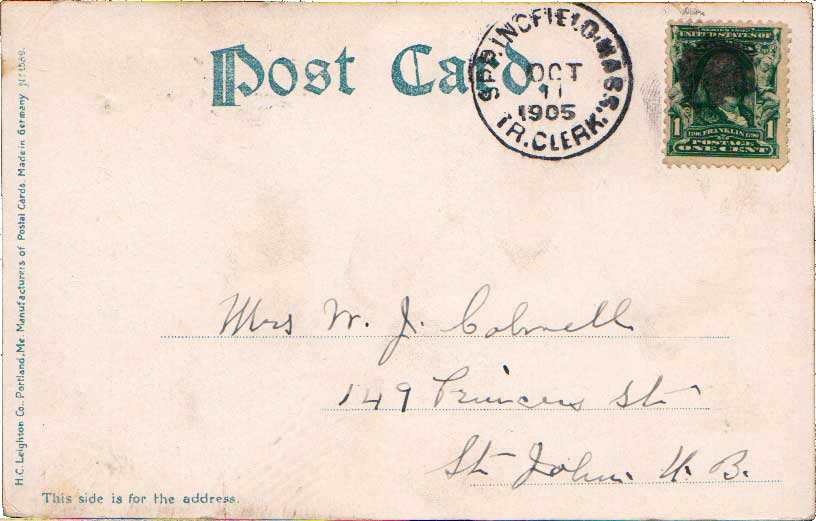 Post Card
SPRINGFIELD. MASS.
OCT
11
1905
TR. CLERK.
SERIES 1902
UNITED STATES OF
1 1
1706 FRANKLIN 1790
POSTAGE
ONE CENT
Mrs W. J. Colwell
149 Princess St
St John N. B.
This side is for the address.
H.C. Leighton Co., Portland, Me. Manufacturers of Postal Cards. Made in Germany